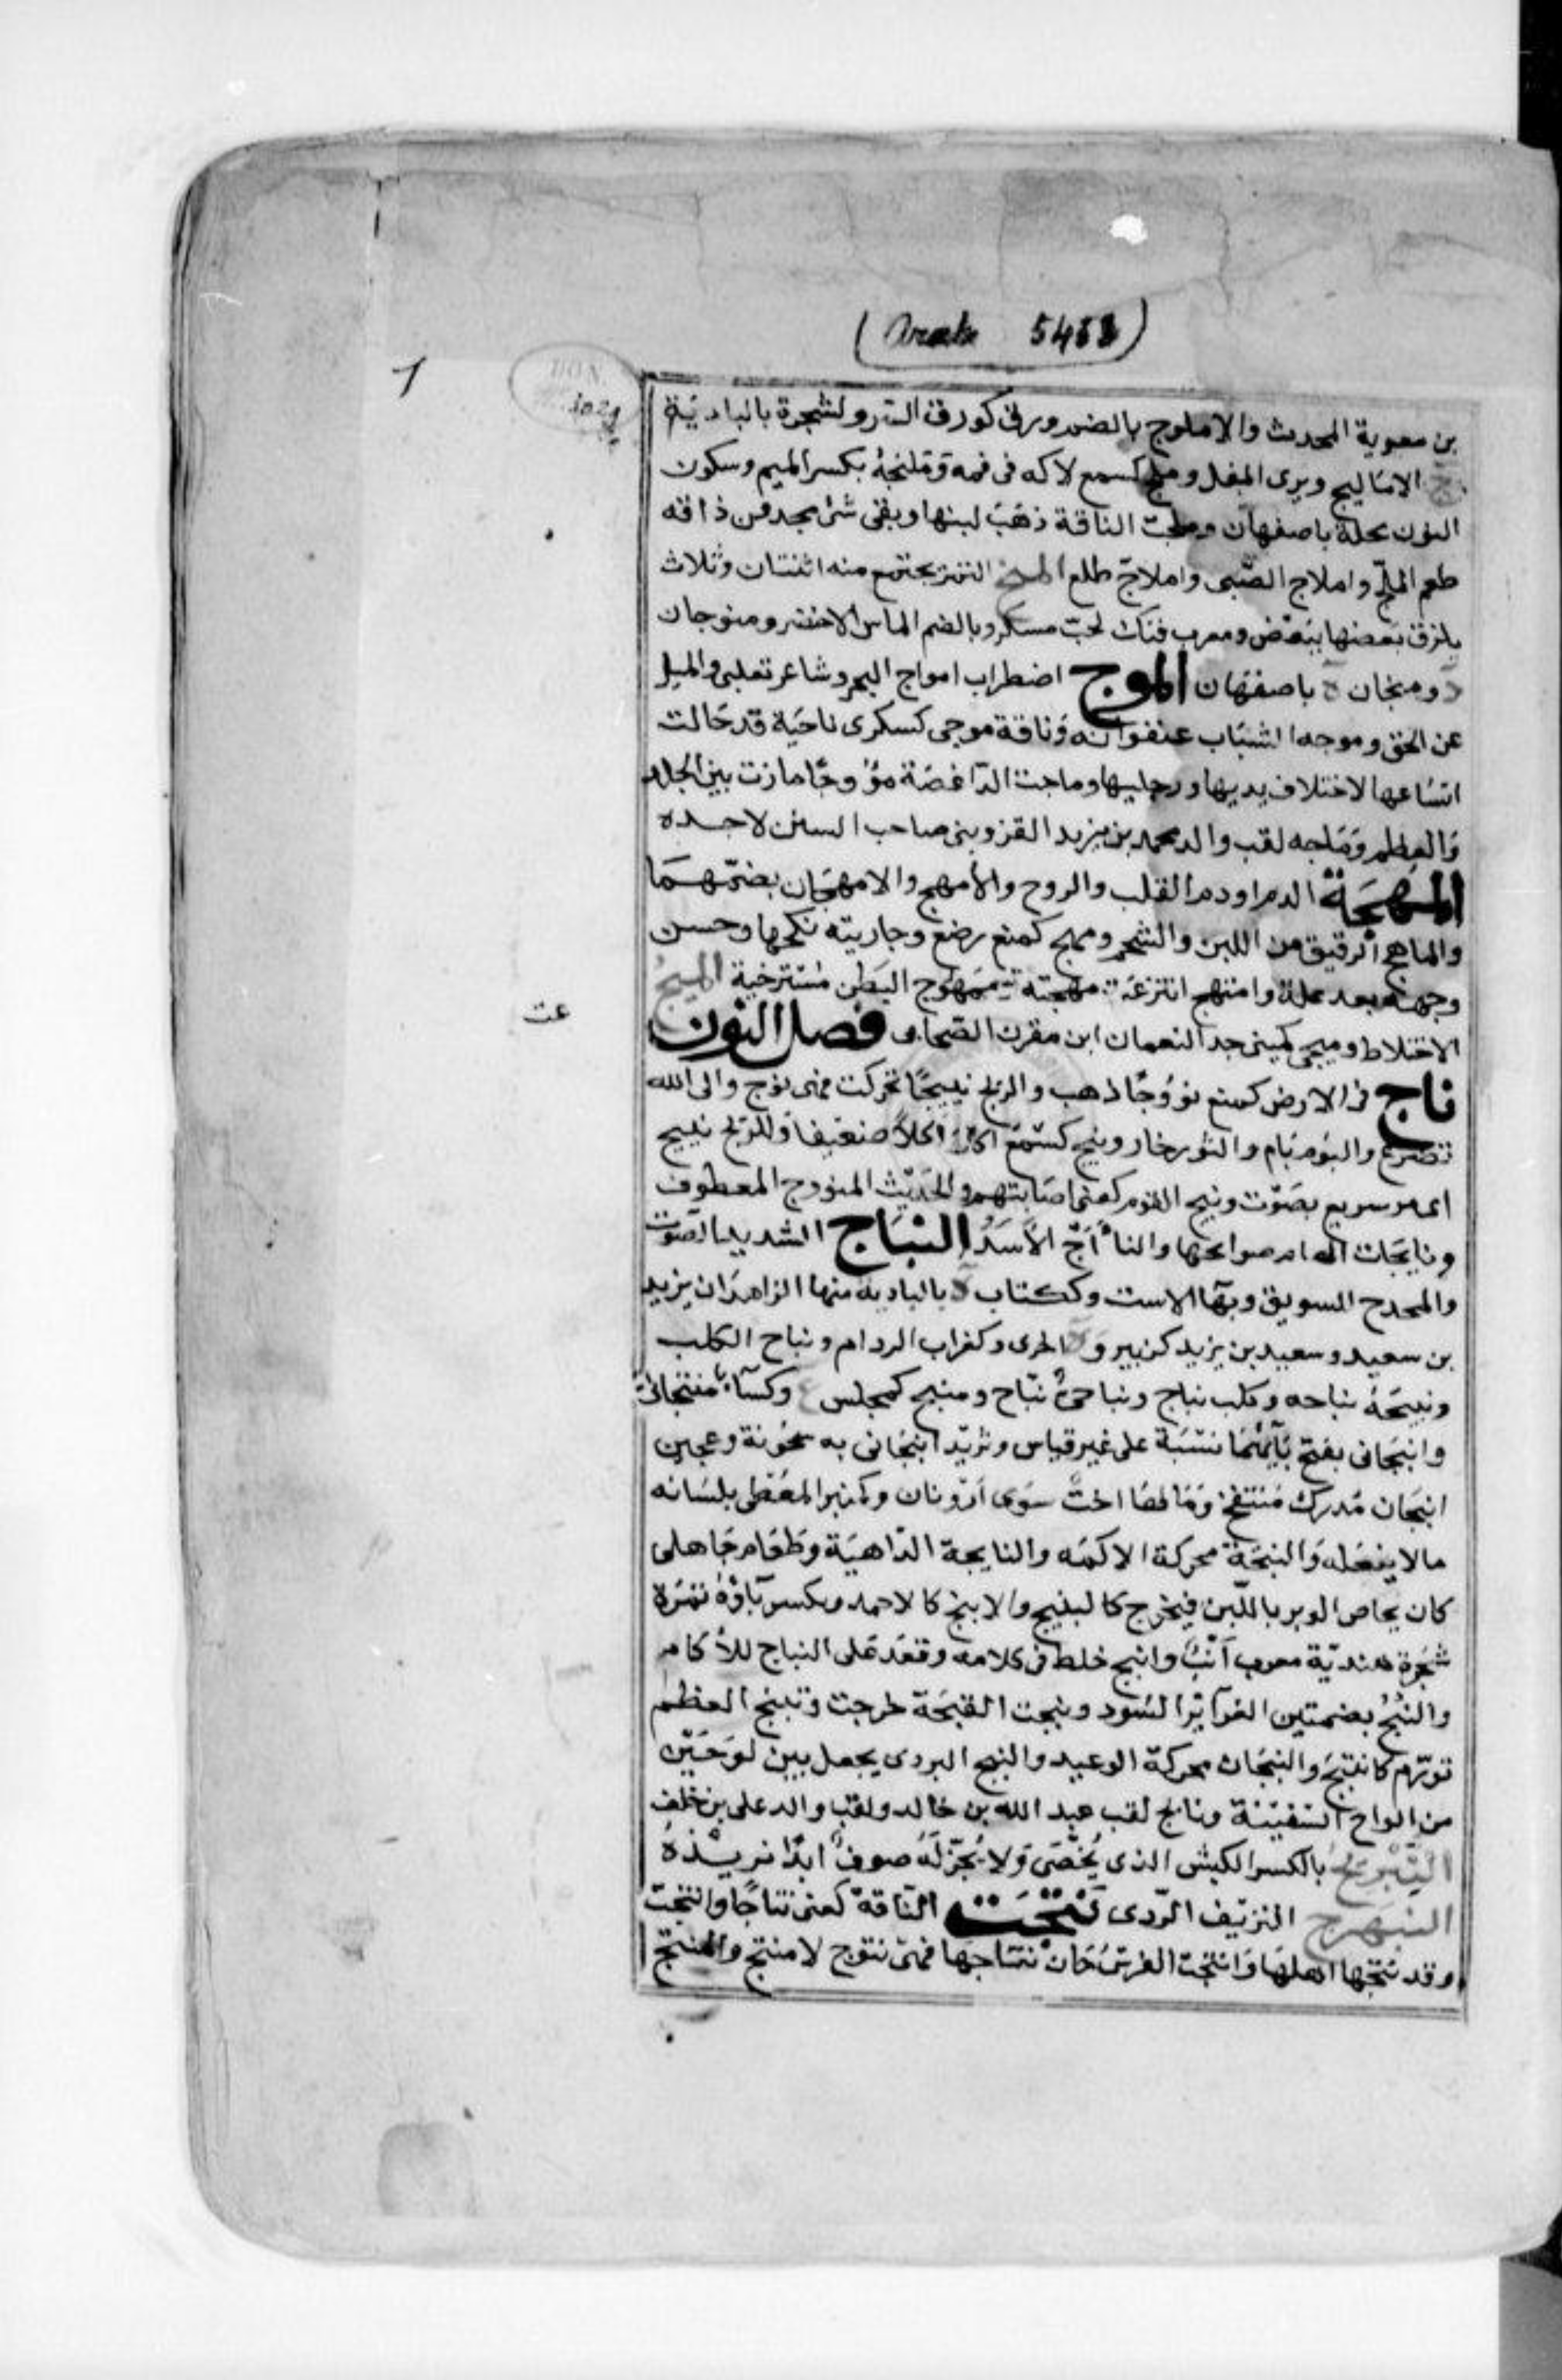 (Arabe 5458)
1
DON.
3029
بن معوية المحدث والاملوج بالضم ورق كورق السرو لشجرة بالبادية
ج الاماليج ونوى المقل وملج كسمع لاكه فى فمه وملنجة بكسر الميم وسكون
النون محلة باصفهان وملجت الناقة ذهب لبنها وبقى شئ يجد من ذاقه
طعم الملح واملاج الصبى واملاج طلع المنج التمر يجتمع منه اثنتان وثلاث
يلزق بعضها ببعض ومعرب فنك لحب مسكر وبالضم الماش الاخضر ومنوجان
د ومنجان ة باصفهان الموج اضطراب امواج البحر وشاعر تغلبى والميل
عن الحق وموجه الشباب عنفوانه وناقة موجى كسكرى ناحية قد حالت
اتساعها لاختلاف يديها ورجليها وماجت الداغصة مؤوجا مارت بين الجلد
والعظم وماجه لقب والد محمد بن يزيد القزوينى صاحب السنن لا جده
المهجة الدم او دم القلب والروح والامهج والامهجان بضمهما
والماهج الرقيق من اللبن والشحم ومهج كمنع رضع وجاريته نكحها وحسن
وجهه بعد علة وامتهج انتزعت مهجته ممهوج البطن مسترخية الميج
الاختلاط وميجى كمينى جد النعمان ابن مقرن الصحابى فصل النون
عت
ناج فى الارض كمنع نؤوجا ذهب والريح نييجا تحركت فهى نؤج والى الله
تضرع والبوم نام والثور خار ونيج كسمع اكل اكلا ضعيفا وللريح نييج
اى مر سريع بصوت ونيج القوم كعنى اصابتهم والحديث المنؤوج المعطوف
ونايجات الهام صوايحها والنأاج الاسد النباج الشديد الصوت
والمجدح للسويق وبهآ الاست وككتاب ة بالبادية منها الزاهدان يزيد
بن سعيد وسعيد بن يزيد كزبير وة اخرى وكغراب الردام ونباح الكلب
ونبيجه نباحه وكلب نباج ونباجى نباح ومنبج كمجلس ع وكسآء منبجانى
وانبجانى بفتح بآيهما نسبة على غير قياس وثريد انبجانى به سخونة وعجين
انبجان مدرك منتفخ وما لها اخت سوى ارونان وكمنبر المعطى بلسانه
مالا يفعله والنبجة محركة الاكمه والنابجة الداهية وطعام جاهلى
كان يخاض الوبر باللبن فيخرج كالنبيج والانبج كاحمد وبكسر باؤه ثمرة
شجرة هندية معرب انب وانبج خلط فى كلامه وقعد على النباج للاكام
والنبج بضمتين الغرآئر السود ونبجت القبجة خرجت وتنبج العظم
تورم كانتبج والنبجان محركة الوعيد والنبج البردى يجعل بين لوحين
من الواح السفينة ونابج لقب عبد الله بن خالد ولقب والد على بن خلف
النبريج بالكسر الكبش الذى يخصى ولا يجز له صوف ابدا نريذه
النبهرج الزيف الردى نتجت الناقة كعنى نتاجا وانتجت
وقد نتجها اهلها وانتجت الفرس حان نتاجها فهى نتوج لا منتج والمنتج